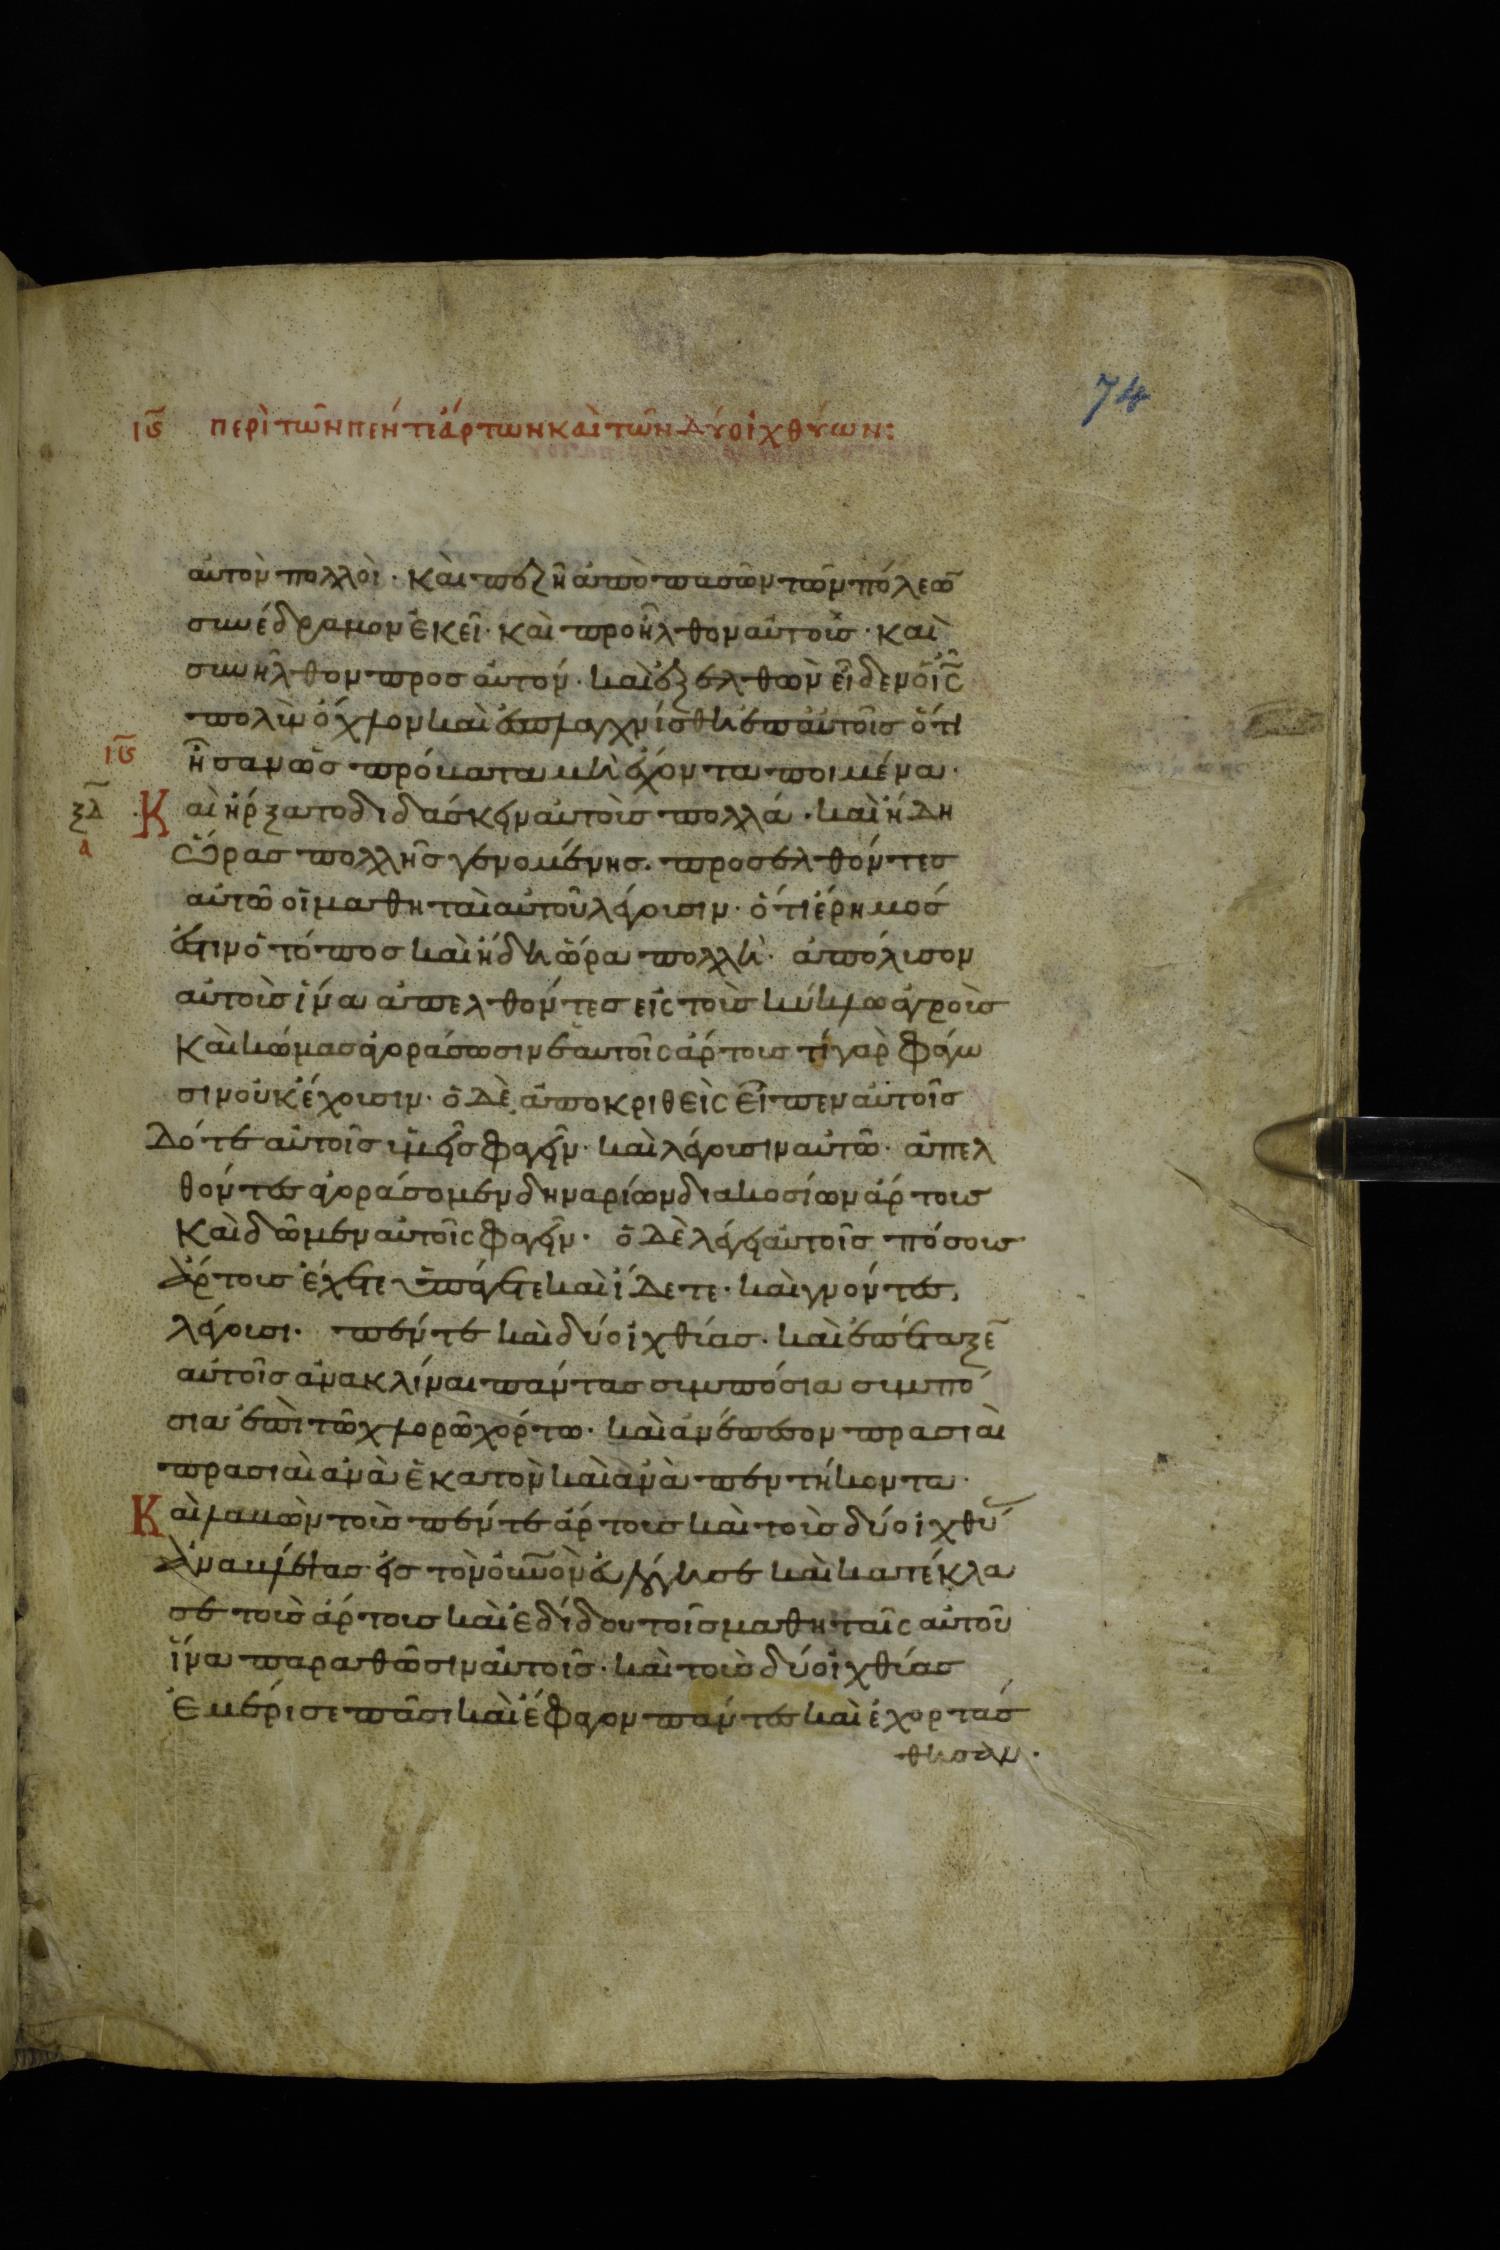 74
ις̅ περὶ τῶν πέντε ἄρτων καὶ τῶν δύο ἰχθύων:
αὐτὸν πολλοὶ· καὶ πεζῆ ἀπὸ πασῶν τῶν πόλεω̅
συνέδραμον ἐκεῖ· καὶ προῆλθον αὐτοὺς· καὶ
συνῆλθον προσ αὐτόν· καὶ ἐξελθὼν εἶδεν ὁ ις̅
πολὺν ὄχλον καὶ ἐσπλαγχνίσθη ἐπ αὐτοῖς ὅτι
ις̅
ἦσαν ὡς πρόβατα μὴ ἔχοντα ποιμένα·
ξδ̅
α
Καὶ ἤρξατο διδάσκειν αὐτοὺς πολλά· καὶ ἤδη
ὥρας πολλῆς γενομένης· προσελθόντες
αὐτῶ οἱ μαθηταὶ αὐτοῦ λέγουσιν· ὅτι ἔρημός
ἐστιν ὁ τόπος καὶ ἤδη ὥρα πολλὴ· ἀπόλυσον
αὐτοὺς ἵνα ἀπελθόντες εἰς τοὺς κύκλω ἀγροὺς
καὶ κώμας ἀγοράσωσιν ἑαυτοῖς ἄρτους τί γὰρ φάγω
σιν οὐκ ἔχουσιν· ὁ δὲ ἀποκριθεὶς εἶπεν αὐτοῖς
δότε αὐτοῖς ὑμεῖς φαγεῖν· καὶ λέγουσιν αὐτῶ· ἀπελ
θόντες ἀγοράσομεν δηναρίων διακοσίων ἄρτους
καὶ δῶμεν αὐτοῖς φαγεῖν· ὁ δὲ λέγει αὐτοῖς πόσους
ἄρτους ἔχετε ὑπάγετε καὶ ἴδετε· καὶ γνόντες,
λέγουσι· πέντε καὶ δύο ἰχθύας· καὶ ἐπέταξε̅
αὐτοῖς ἀνακλίναι πάντας συμπόσια συμπό
σια ἐπὶ τῶ χλορῶ χόρτω· καὶ ἀνέπεσον πρασιαὶ
πρασιαὶ ἀνὰ ἑκατὸν καὶ ἀνὰ πεντήκοντα·
Καὶ λαβὼν τοὺς πέντε ἄρτους καὶ τοὺς δύο ἰχθύ
ἀναβλέψας εἰς τὸν οὐνὸν εὐλόγησε καὶ κατέκλα
σε τοὺς ἄρτους καὶ ἐδίδου τοῖς μαθηταῖς αὐτοῦ
ἵνα παραθῶσιν αὐτοῖς· καὶ τοὺς δύο ἰχθύας
ἐμέρισε πᾶσι καὶ ἔφαγον πάντες καὶ ἐχορτάσ
θησαν·